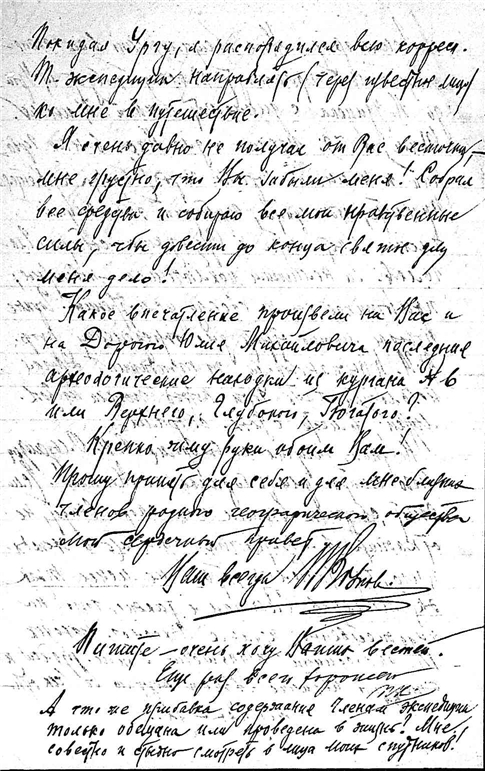 Покидая Ургу, я распорядился всю корресп.
т. экспедиции направлять (через известное лицо)
ко мне в путешествие.
Я очень давно не получал от Вас весточки,
мне грустно, что Вы забыли меня! Собрал
все средства и собираю все мои нравственные
силы, чтобы довести до конца святое для
меня дело!
Какое впечатление произвели на Вас и
на Дорогого Юлия Михайловича последние
археологические находки из кургана № 6
или Верхнего, Глубокого, Богатого?
Крепко жму руки обоим Вам!
Прошу принять для себя и для мне близких
членов родного географического общества
мой сердечный привет
Ваш всегда П Козлов.
Пишите – очень хочу Ваших вестей.
Еще раз всего хорошего
ПК
А что же прибавка содержания членам экспедиции
только обещана или проведена в жизнь? Мне
совестно и стыдно смотреть в лица моих спутников!